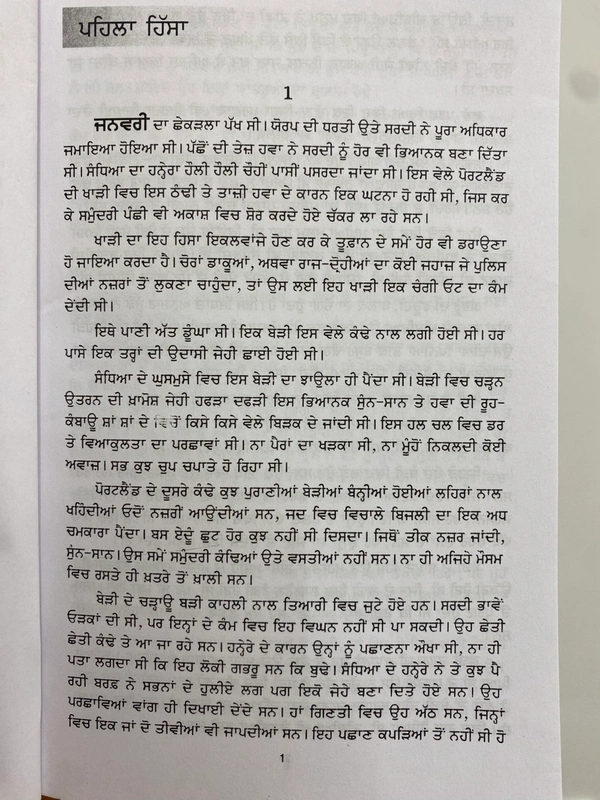 ਪਹਿਲਾ ਹਿੱਸਾ
1
ਜਨਵਰੀ ਦਾ ਛੇਕੜਲਾ ਪੱਖ ਸੀ। ਯੋਰਪ ਦੀ ਧਰਤੀ ਉਤੇ ਸਰਦੀ ਨੇ ਪੂਰਾ ਅਧਿਕਾਰ
ਜਮਾਇਆ ਹੋਇਆ ਸੀ। ਪੱਛੋਂ ਦੀ ਤੇਜ਼ ਹਵਾ ਨੇ ਸਰਦੀ ਨੂੰ ਹੋਰ ਵੀ ਭਿਆਨਕ ਬਣਾ ਦਿੱਤਾ
ਸੀ। ਸੰਧਿਆ ਦਾ ਹਨ੍ਹੇਰਾ ਹੌਲੀ ਹੌਲੀ ਚੌਹੀਂ ਪਾਸੀਂ ਪਸਰਦਾ ਜਾਂਦਾ ਸੀ। ਇਸ ਵੇਲੇ ਪੋਰਟਲੈਂਡ
ਦੀ ਖਾੜੀ ਵਿਚ ਇਸ ਠੰਢੀ ਤੇ ਤਾਜ਼ੀ ਹਵਾ ਦੇ ਕਾਰਨ ਇਕ ਘਟਨਾ ਹੋ ਰਹੀ ਸੀ, ਜਿਸ ਕਰ
ਕੇ ਸਮੁੰਦਰੀ ਪੰਛੀ ਵੀ ਅਕਾਸ਼ ਵਿਚ ਸ਼ੋਰ ਕਰਦੇ ਹੋਏ ਚੱਕਰ ਲਾ ਰਹੇ ਸਨ।
ਖਾੜੀ ਦਾ ਇਹ ਹਿਸਾ ਇਕਲਵਾਂਜੇ ਹੋਣ ਕਰ ਕੇ ਤੂਫ਼ਾਨ ਦੇ ਸਮੇਂ ਹੋਰ ਵੀ ਡਰਾਉਣਾ
ਹੋ ਜਾਇਆ ਕਰਦਾ ਹੈ। ਚੋਰਾਂ ਡਾਕੂਆਂ, ਅਥਵਾ ਰਾਜ-ਦ੍ਰੋਹੀਆਂ ਦਾ ਕੋਈ ਜਹਾਜ਼ ਜੇ ਪੁਲਿਸ
ਦੀਆਂ ਨਜ਼ਰਾਂ ਤੋਂ ਲੁਕਣਾ ਚਾਹੁੰਦਾ, ਤਾਂ ਉਸ ਲਈ ਇਹ ਖਾੜੀ ਇਕ ਚੰਗੀ ਓਟ ਦਾ ਕੰਮ
ਦੇਂਦੀ ਸੀ।
ਇਥੇ ਪਾਣੀ ਅੱਤ ਡੂੰਘਾ ਸੀ। ਇਕ ਬੇੜੀ ਇਸ ਵੇਲੇ ਕੰਢੇ ਨਾਲ ਲਗੀ ਹੋਈ ਸੀ। ਹਰ
ਪਾਸੇ ਇਕ ਤਰ੍ਹਾਂ ਦੀ ਉਦਾਸੀ ਜੇਹੀ ਛਾਈ ਹੋਈ ਸੀ।
ਸੰਧਿਆ ਦੇ ਘੁਸਮੁਸੇ ਵਿਚ ਇਸ ਬੇੜੀ ਦਾ ਝਾਉਲਾ ਹੀ ਪੈਂਦਾ ਸੀ। ਬੇੜੀ ਵਿਚ ਚੜ੍ਹਨ
ਉਤਰਨ ਦੀ ਖ਼ਾਮੋਸ਼ ਜੇਹੀ ਹਫੜਾ ਦਫੜੀ ਇਸ ਭਿਆਨਕ ਸੁੰਨ-ਸਾਨ ਤੇ ਹਵਾ ਦੀ ਰੂਹ-
ਕੰਬਾਊ ਸ਼ਾਂ ਸ਼ਾਂ ਦੇ ਵਿਚੋਂ ਕਿਸੇ ਕਿਸੇ ਵੇਲੇ ਬਿੜਕ ਦੇ ਜਾਂਦੀ ਸੀ। ਇਸ ਹਲ ਚਲ ਵਿਚ ਡਰ
ਤੇ ਵਿਆਕੁਲਤਾ ਦਾ ਪਰਛਾਵਾਂ ਸੀ। ਨਾ ਪੈਰਾਂ ਦਾ ਖੜਕਾ ਸੀ, ਨਾ ਮੂੰਹੋਂ ਨਿਕਲਦੀ ਕੋਈ
ਅਵਾਜ਼। ਸਭ ਕੁਝ ਚੁਪ ਚਪਾਤੇ ਹੋ ਰਿਹਾ ਸੀ।
ਪੋਰਟਲੈਂਡ ਦੇ ਦੂਸਰੇ ਕੰਢੇ ਕੁਝ ਪੁਰਾਣੀਆਂ ਬੇੜੀਆਂ ਬੰਨ੍ਹੀਆਂ ਹੋਈਆਂ ਲਹਿਰਾਂ ਨਾਲ
ਖਹਿੰਦੀਆਂ ਓਦੋਂ ਨਜ਼ਰੀਂ ਆਉਂਦੀਆਂ ਸਨ, ਜਦ ਵਿਚ ਵਿਚਾਲੇ ਬਿਜਲੀ ਦਾ ਇਕ ਅਧ
ਚਮਕਾਰਾ ਪੈਂਦਾ। ਬਸ ਏਦੂੰ ਛੁਟ ਹੋਰ ਕੁਝ ਨਹੀਂ ਸੀ ਦਿਸਦਾ। ਜਿਥੋਂ ਤੀਕ ਨਜ਼ਰ ਜਾਂਦੀ,
ਸੁੰਨ-ਸਾਨ। ਉਸ ਸਮੇਂ ਸਮੁੰਦਰੀ ਕੰਢਿਆਂ ਉਤੇ ਵਸਤੀਆਂ ਨਹੀਂ ਸਨ। ਨਾ ਹੀ ਅਜਿਹੇ ਮੌਸਮ
ਵਿਚ ਰਸਤੇ ਹੀ ਖ਼ਤਰੇ ਤੋਂ ਖ਼ਾਲੀ ਸਨ।
ਬੇੜੀ ਦੇ ਚੜ੍ਹਾਊ ਬੜੀ ਕਾਹਲੀ ਨਾਲ ਤਿਆਰੀ ਵਿਚ ਜੁਟੇ ਹੋਏ ਹਨ। ਸਰਦੀ ਭਾਵੇਂ
ਓੜਕਾਂ ਦੀ ਸੀ, ਪਰ ਇਨ੍ਹਾਂ ਦੇ ਕੰਮ ਵਿਚ ਇਹ ਵਿਘਨ ਨਹੀਂ ਸੀ ਪਾ ਸਕਦੀ। ਉਹ ਛੇਤੀ
ਛੇਤੀ ਕੰਢੇ ਤੇ ਆ ਜਾ ਰਹੇ ਸਨ। ਹਨ੍ਹੇਰੇ ਦੇ ਕਾਰਨ ਉਨ੍ਹਾਂ ਨੂੰ ਪਛਾਣਨਾ ਔਖਾ ਸੀ, ਨਾ ਹੀ
ਪਤਾ ਲਗਦਾ ਸੀ ਕਿ ਇਹ ਲੋਕੀ ਗਭਰੂ ਸਨ ਕਿ ਬੁਢੇ। ਸੰਧਿਆ ਦੇ ਹਨ੍ਹੇਰੇ ਨੇ ਤੇ ਕੁਝ ਪੈ
ਰਹੀ ਬਰਫ਼ ਨੇ ਸਭਨਾਂ ਦੇ ਹੁਲੀਏ ਲਗ ਪਗ ਇਕੋ ਜੇਹੇ ਬਣਾ ਦਿਤੇ ਹੋਏ ਸਨ। ਉਹ
ਪਰਛਾਵਿਆਂ ਵਾਂਗ ਹੀ ਦਿਖਾਈ ਦੇਂਦੇ ਸਨ। ਹਾਂ ਗਿਣਤੀ ਵਿਚ ਉਹ ਅੱਠ ਸਨ, ਜਿਨ੍ਹਾਂ
ਵਿਚ ਇਕ ਜਾਂ ਦੋ ਤੀਵੀਆਂ ਵੀ ਜਾਪਦੀਆਂ ਸਨ। ਇਹ ਪਛਾਣ ਕਪੜਿਆਂ ਤੋਂ ਨਹੀਂ ਸੀ ਹੋ
1